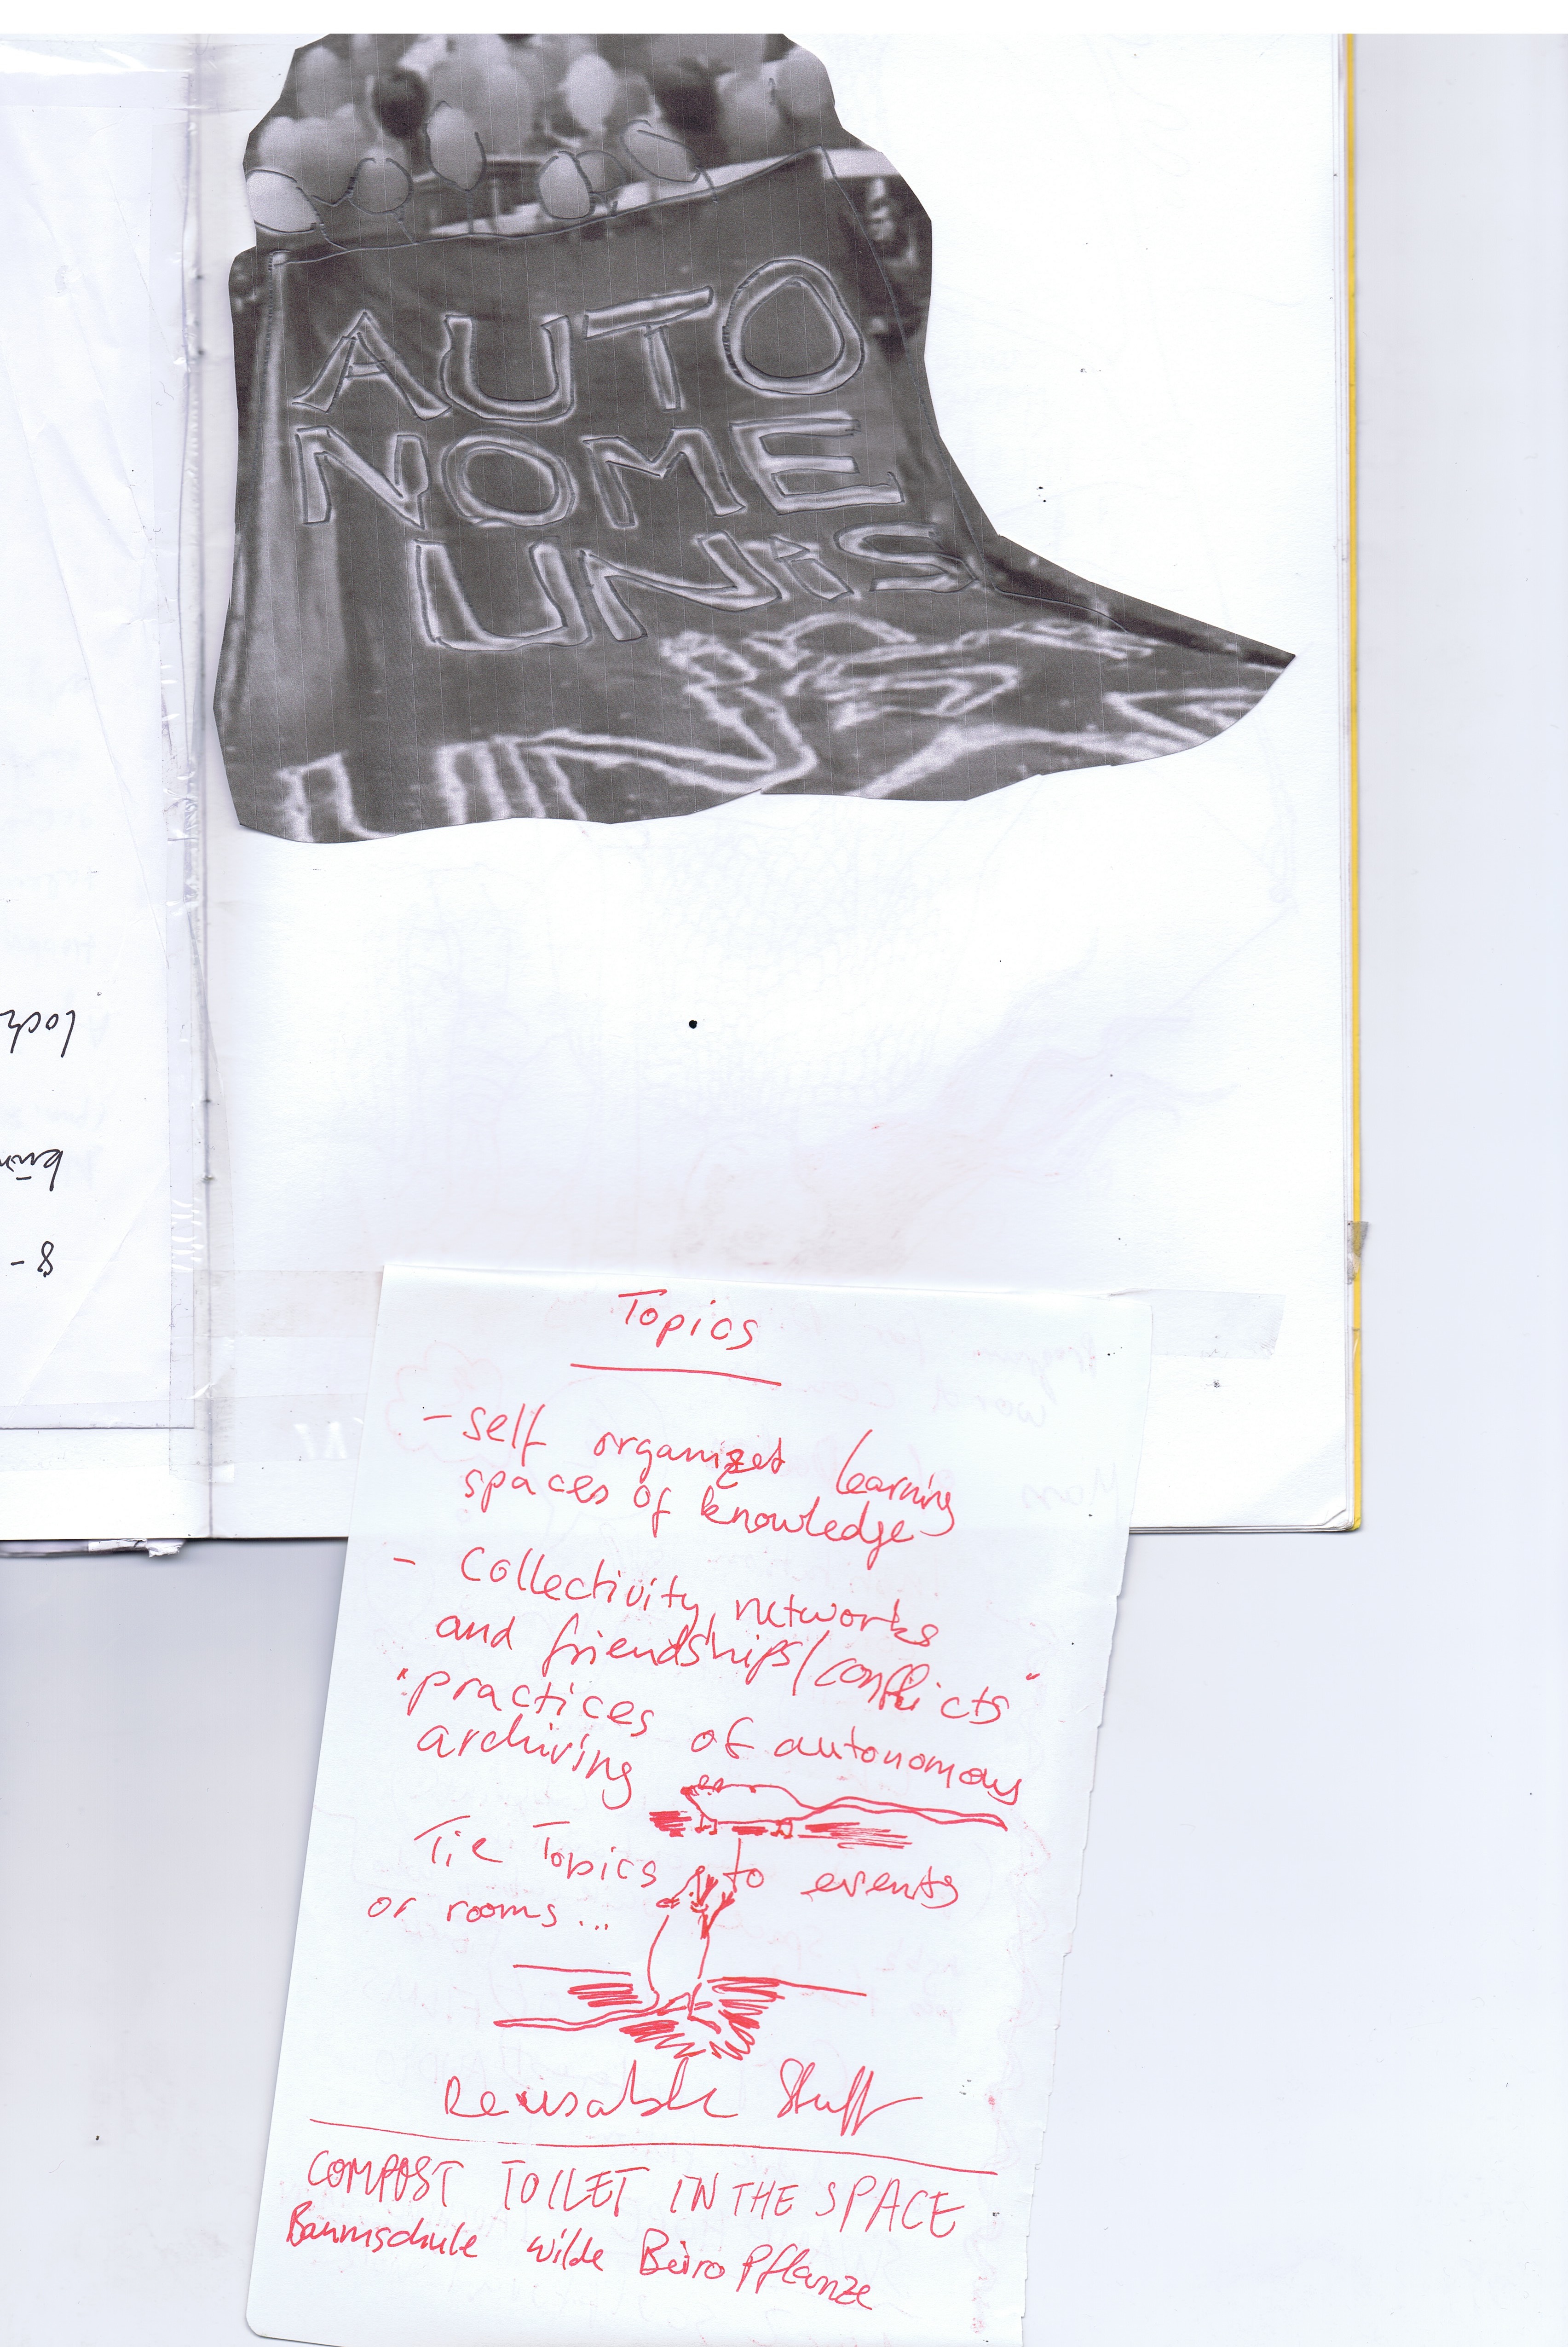 AUTO
NOME
UNIS
UN
Topics
- self organizet learning
spaces of knowledge
- Collectivity, networks
and friendships/conflicts
"practices of autonomous"
archiving
Tie Topics to events
or rooms...
Reusable Stuff
COMPOST TOILET IN THE SPACE
Baumschule wilde Büro Pflanze
8 -